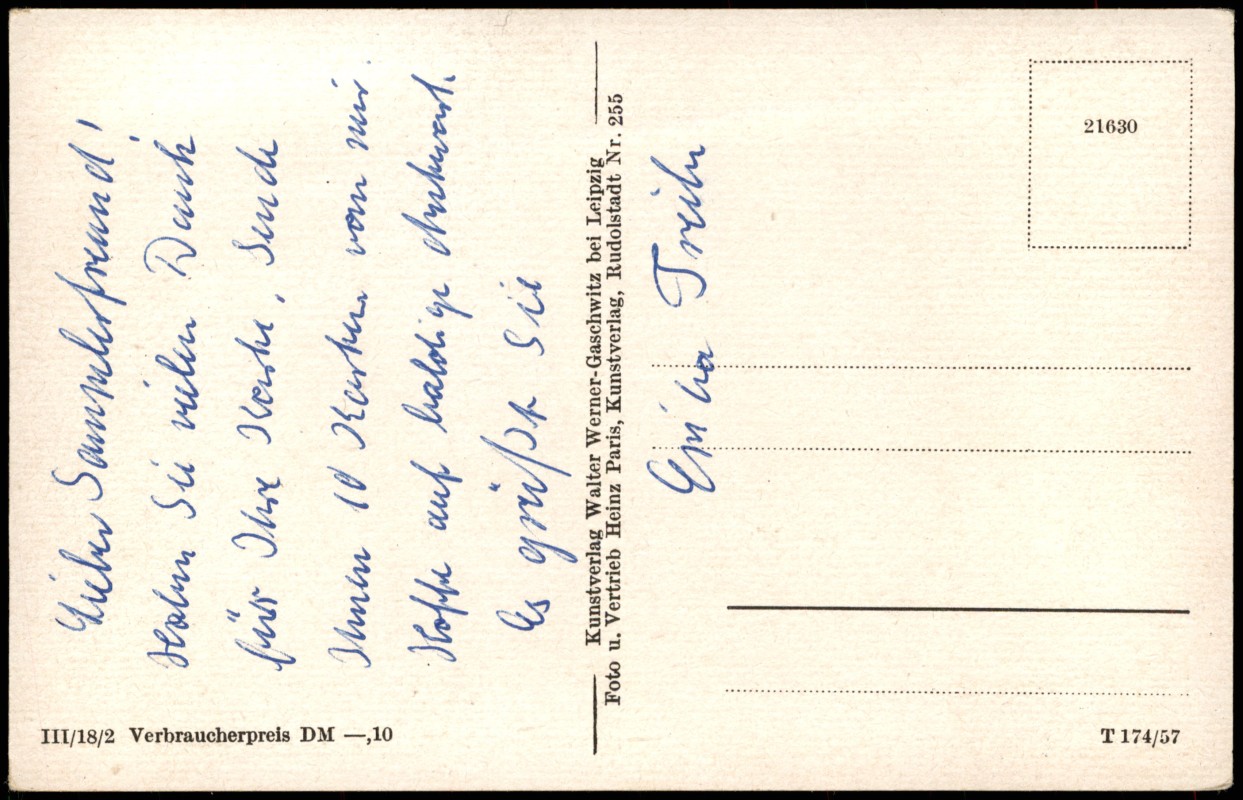 Lieber Sammlerfreund!
Haben Sie vielen Dank
für Ihre Karte. Sende
Ihnen 10 Karten von mir.
Hoffe auf baldige Antwort.
Es grüßt Sie
Kunstverlag Walter Werner-Gaschwitz bei Leipzig
Foto u. Vertrieb Heinz Paris, Kunstverlag, Rudolstadt Nr. 255
21630
III/18/2 Verbraucherpreis DM —,10
T 174/57